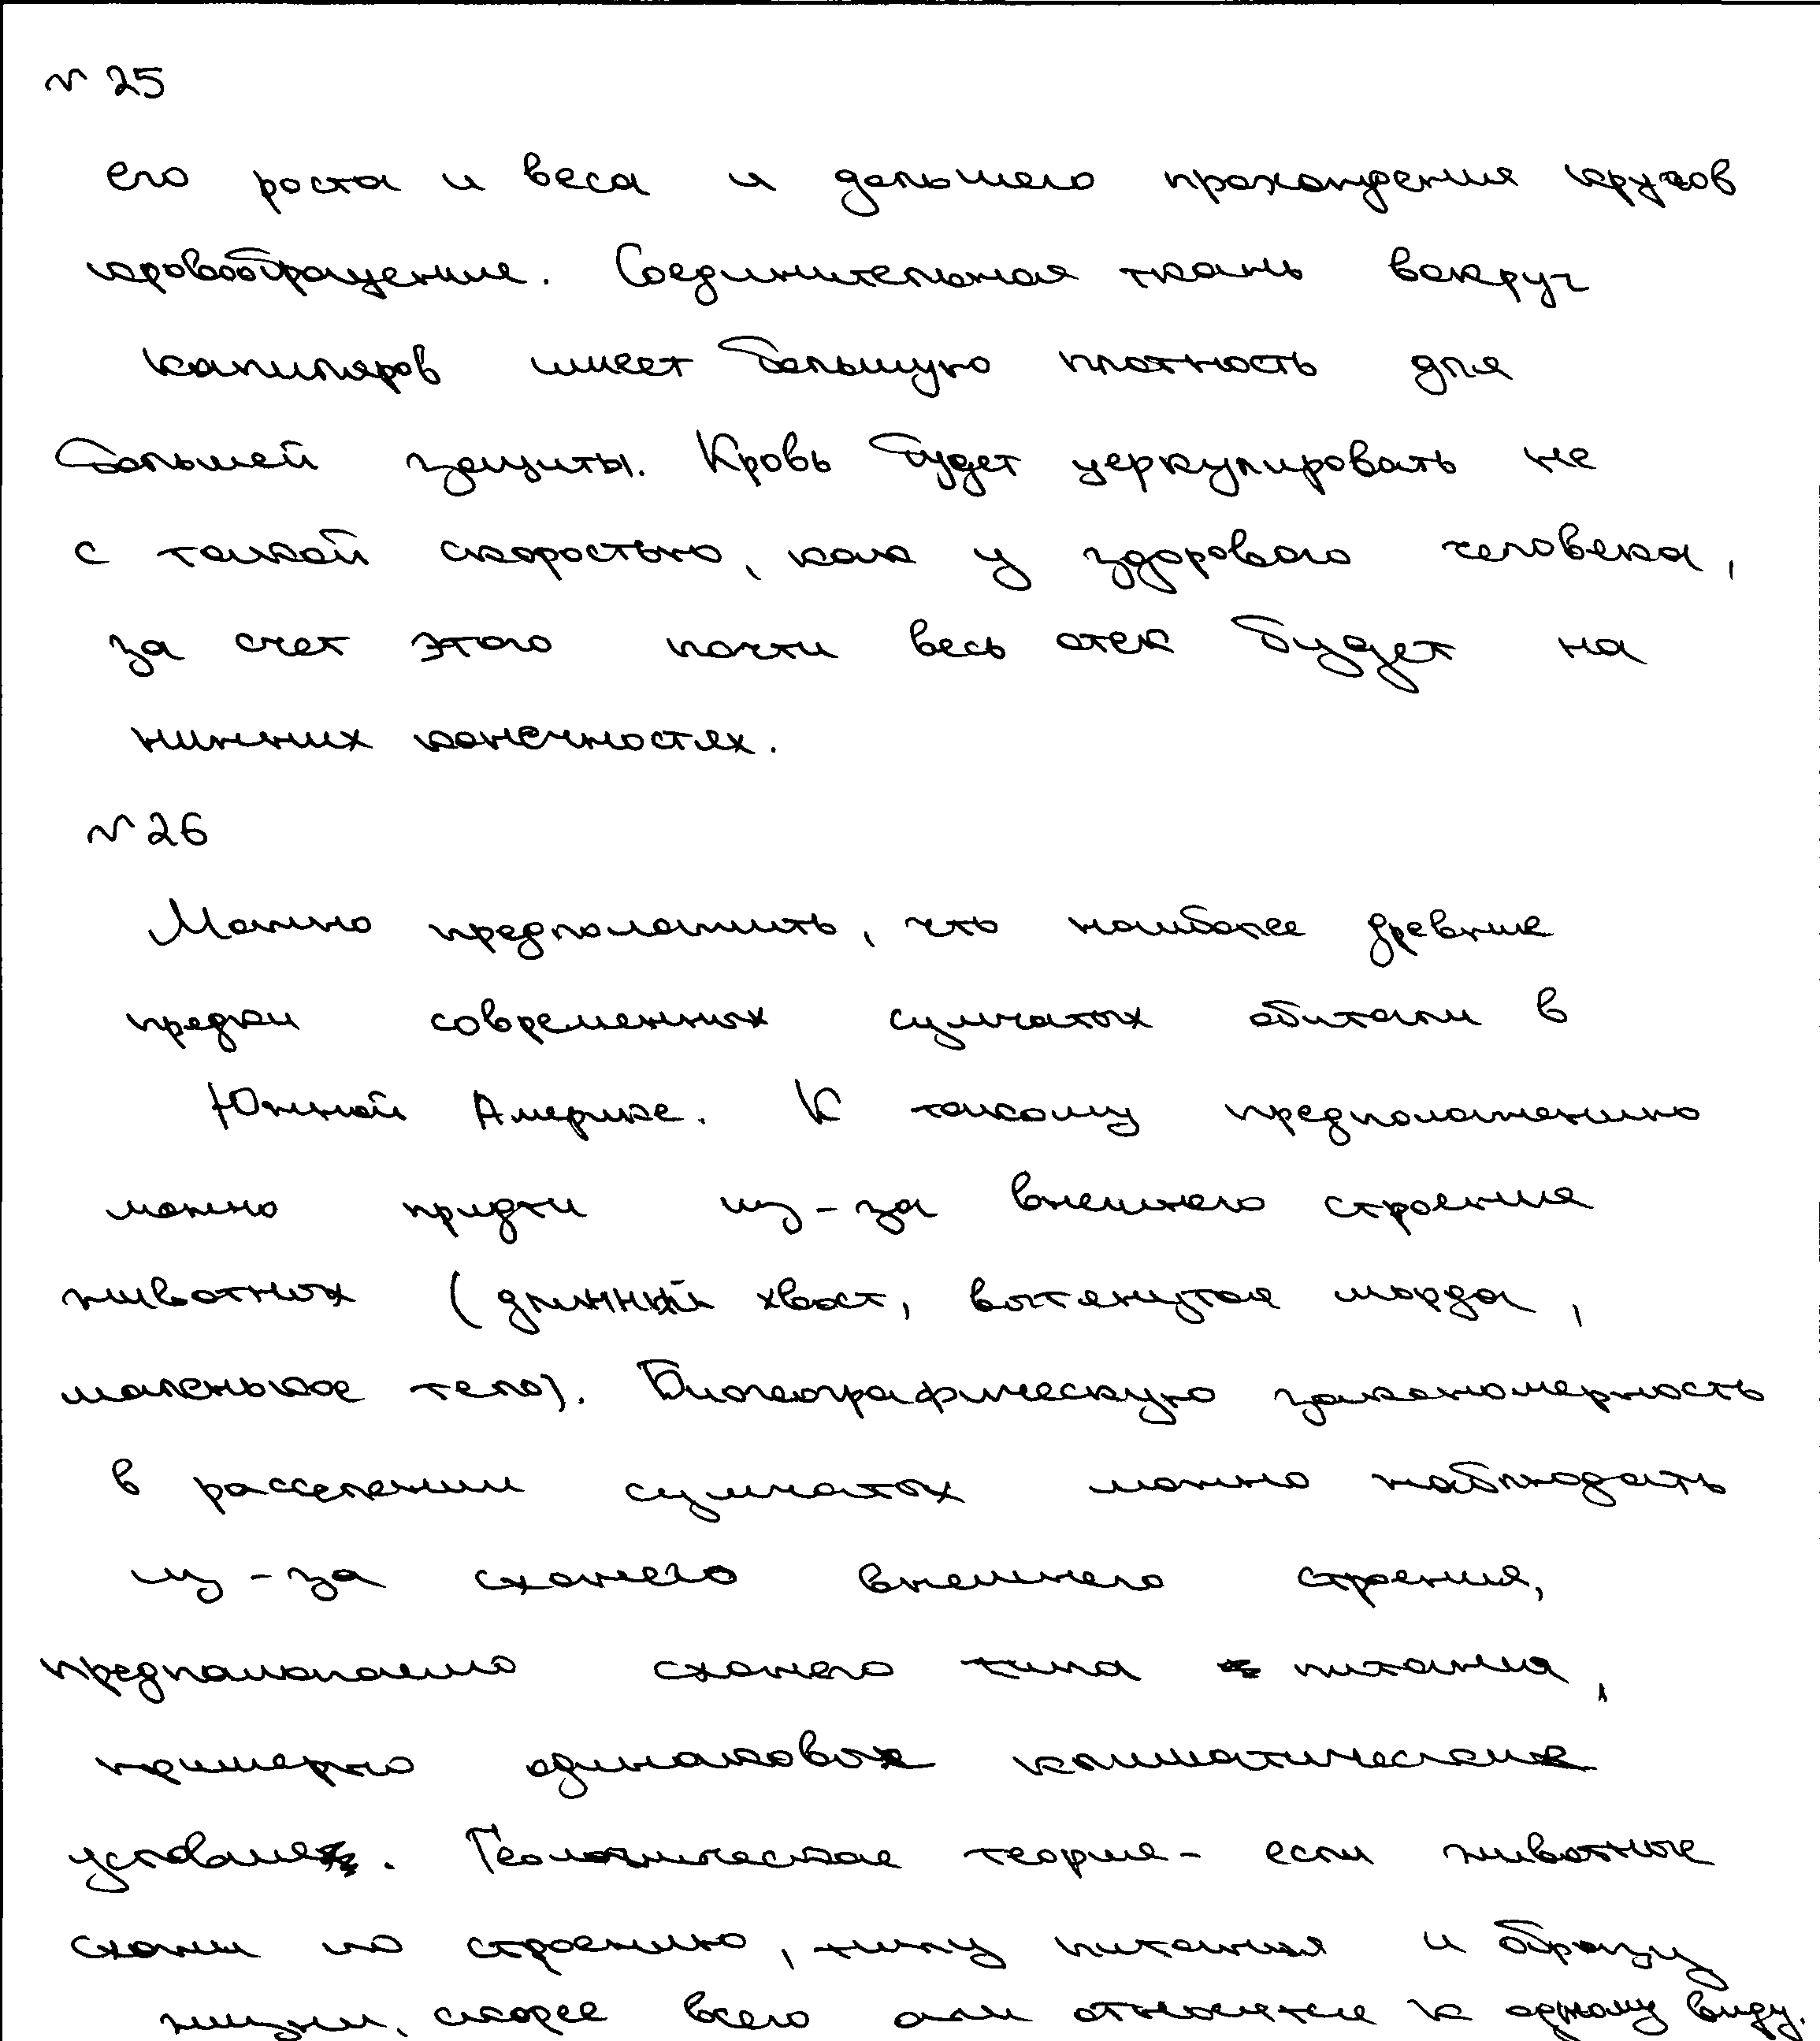 № 25
его роста и веса и дальшего прохождения кругов
кровообращение. Соединительная ткань вокруг
капиляров имеет большую плотность для
большей защиты. Кровь будет церкулировать не
с такой скоростью, как у здорового человека,
за счет этого почти весь отек будет на
нижних конечностях.
№ 26
Можно предположить, что наиболее древние
предки современных сумчатых обитали в
Южной Америке. К такому предположению
можно придти из-за внешнего строения
животных (длинный хвост, вытянутая морда,
маленькое тело). Биогеографическую закономерность
в расселении сумчатых можно наблюдать
из-за схожего внешнего строения,
предположаемо схожего типа питания,
примерно одинаковые климатические
условия. Геологическая теория - если животные
схожи по строению, типу питания и образу
жизни, скорее всего они относятся к одному виду.